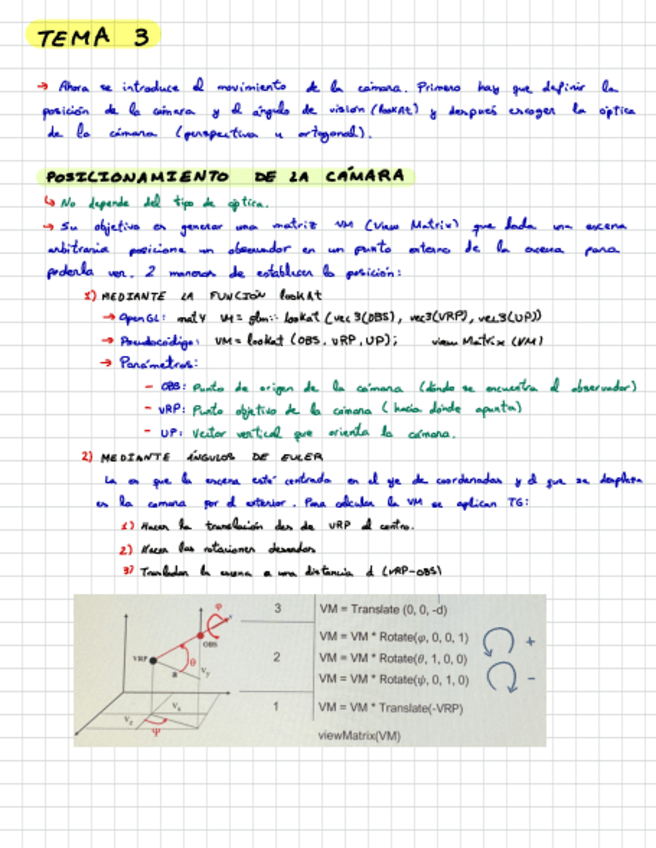 TEMA 3
→ Ahora se introduce el movimiento de la cámara. Primero hay que definir la
posición de la cámera y el ángulo de visión (lookAt) y después escoger la óptica
de la cámara (perspectiva u ortogonal).
POSICIONAMIENTO DE LA CÁMARA
↳ No depende del tipo de óptica.
→ Su objetivo es generar una matriz VM (View Matrix) que dada una escena
arbitraria posicione un observador en un punto externo de la escena para
poderla ver. 2 maneras de establecer la posición:
1) MEDIANTE LA FUNCIÓN lookAt
→ OpenGL: mat4 VM = glm:: lookat (vec3(OBS), vec3(VRP), vec3(UP))
→ Pseudocódigo: VM = lookat (OBS, VRP, UP); view Matrix (VM)
→ Parámetros:
- OBS: Punto de origen de la cámara (dónde se encuentra el observador)
- VRP: Punto objetivo de la cámara (hacia dónde apunta)
- UP: Vector vertical que orienta la cámara.
2) MEDIANTE ÁNGULOS DE EULER
La es que la escena esté centrada en el eje de coordenadas y el que se desplaza
es la camara por el exterior. Para calcular la VM se aplican TG:
1) Hacer la translación des de VRP al centro.
2) Hacer las rotaciones deseadas
3) Trasladar la escena a una distancia d (VRP-OBS)
3 VM = Translate (0, 0, -d)
VM = VM * Rotate(φ, 0, 0, 1) +
2 VM = VM * Rotate(θ, 1, 0, 0)
VM = VM * Rotate(ψ, 0, 1, 0) -
1 VM = VM * Translate(-VRP)
viewMatrix(VM)
φ
OBS
VRP
θ
a
Vy
Vx
Vz
ψ